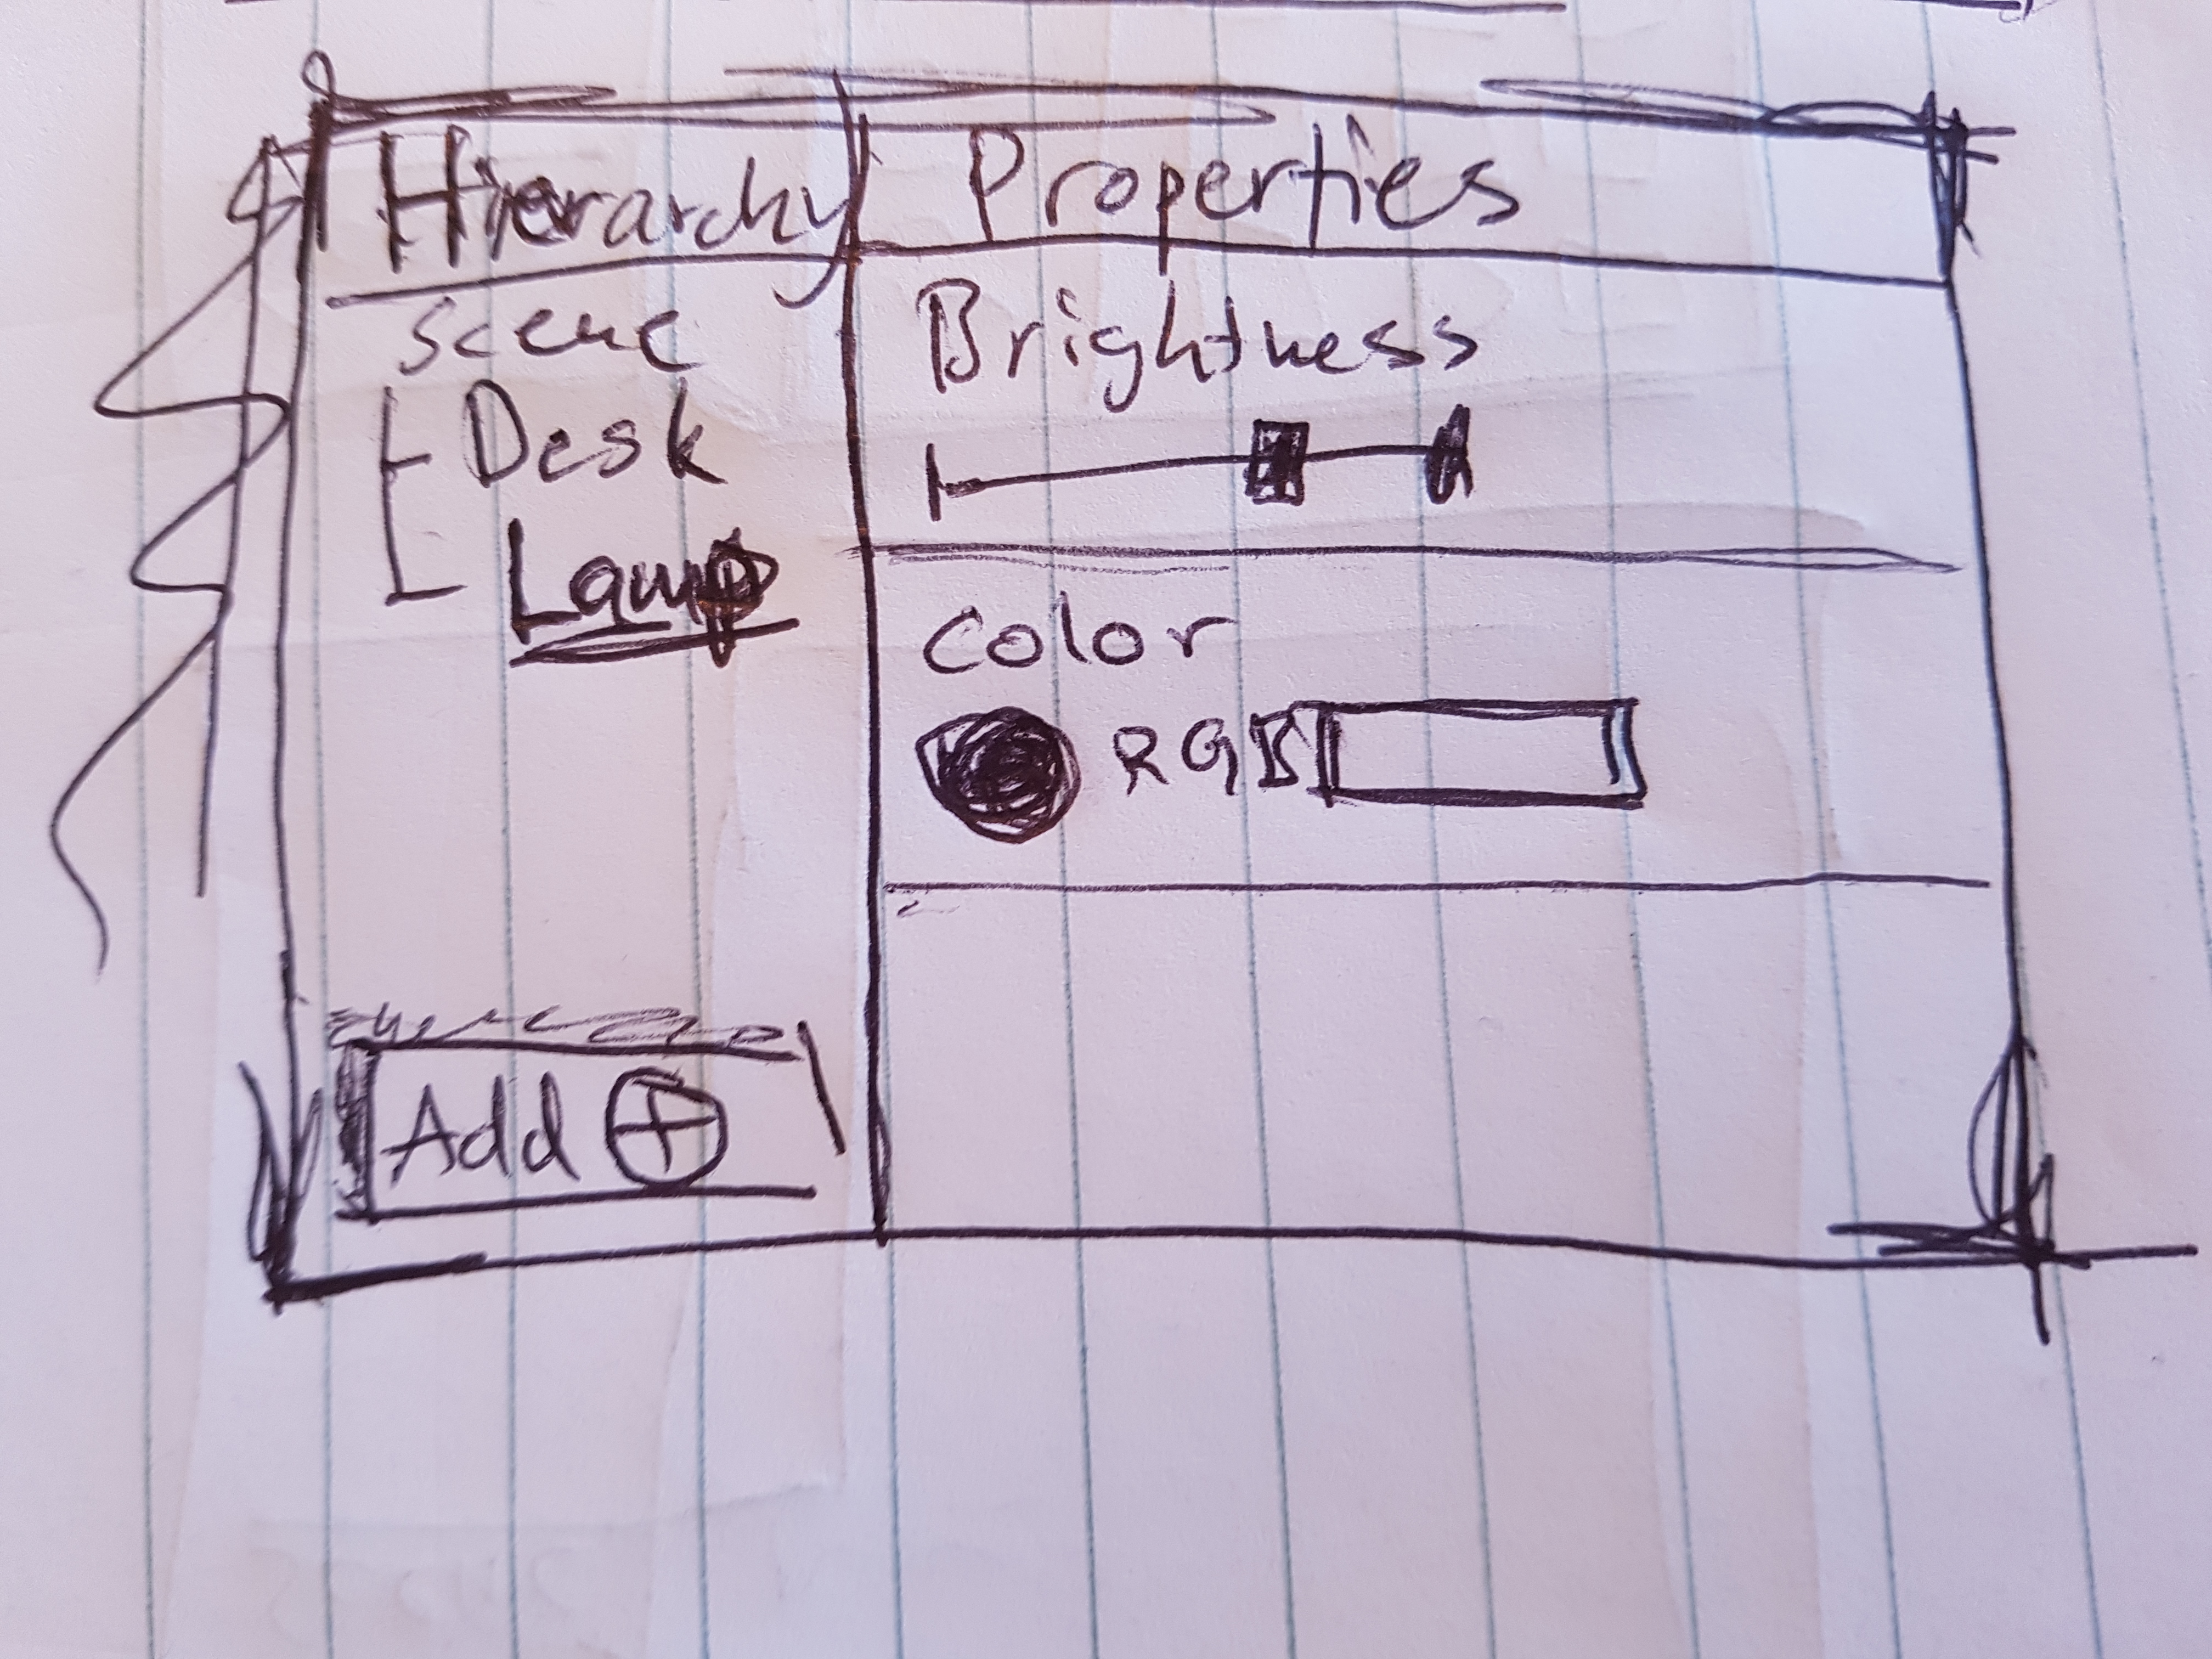 Hierarchy
Scene
Desk
Lamp
Add
Properties
Brightness
Color
RGB